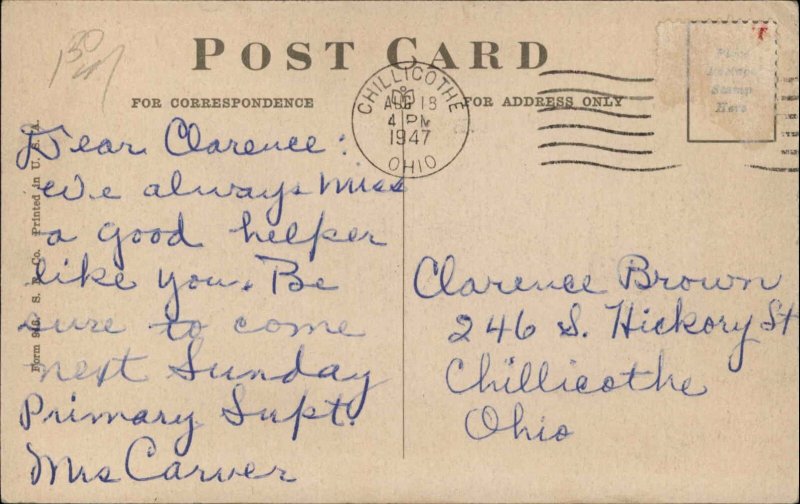 POST CARD
FOR CORRESPONDENCE
FOR ADDRESS ONLY
CHILLICOTHE
AUG 18
4 PM
1947
OHIO
Place
Stamp
Here
Dear Clarence:
We always miss
a good helper
like you. Be
sure to come
next Sunday
Primary Supt.
Mrs Carver
Clarence Brown
246 S. Hickory St
Chillicothe
Ohio
Printed in U. S. A.